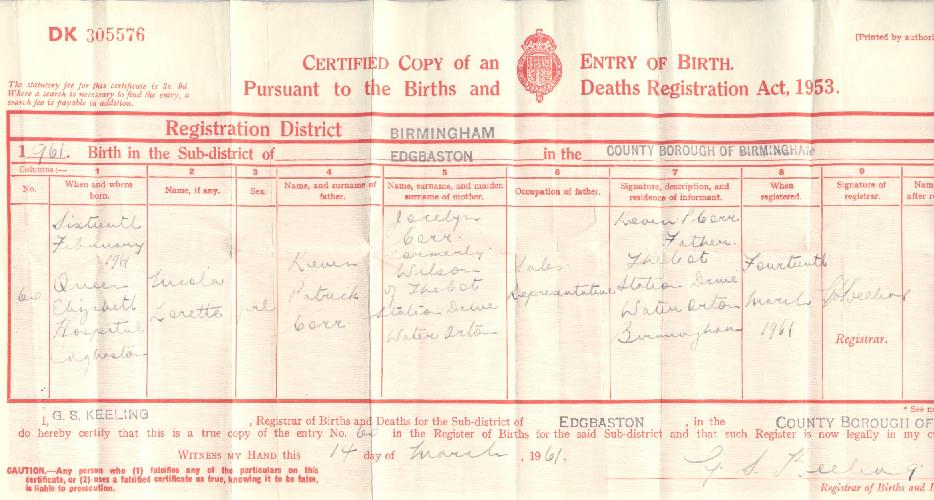 DK 305576
[Printed by authori
CERTIFIED COPY of an ENTRY OF BIRTH.
Pursuant to the Births and Deaths Registration Act, 1953.
The statutory fee for this certificate is 3s. 9d.
Where a search is necessary to find the entry, a
search fee is payable in addition.
Registration District BIRMINGHAM
1961. Birth in the Sub-district of EDGBASTON in the COUNTY BOROUGH OF BIRMINGHAM
Columns:— 1 2 3 4 5 6 7 8 9
No. When and where born. Name, if any. Sex. Name, and surname of father. Name, surname, and maiden surname of mother. Occupation of father. Signature, description, and residence of informant. When registered. Signature of registrar. Nam
after r
Sixteenth
February
1961
Queen
Elizabeth
Hospital
Edgbaston
Nicola
Lorette
Girl
Kieven
Patrick
Corr
Jocelyn
Corr
formerly
Wilson
of The Cot
Station Drive
Water Orton
Sales
Representative
Keven P Corr
Father.
The Cot
Station Drive
Water Orton
Birmingham
Fourteenth
March
1961
Registrar.
* See n
I, G. S. KEELING, Registrar of Births and Deaths for the Sub-district of EDGBASTON, in the COUNTY BOROUGH OF
do hereby certify that this is a true copy of the entry No. in the Register of Births for the said Sub-district and that such Register is now legally in my cu
WITNESS MY HAND this 14 day of March, 1961.
CAUTION.—Any person who (1) falsifies any of the particulars on this
certificate, or (2) uses a falsified certificate as true, knowing it to be false,
is liable to prosecution.
G. S. Keeling
Registrar of Births and D